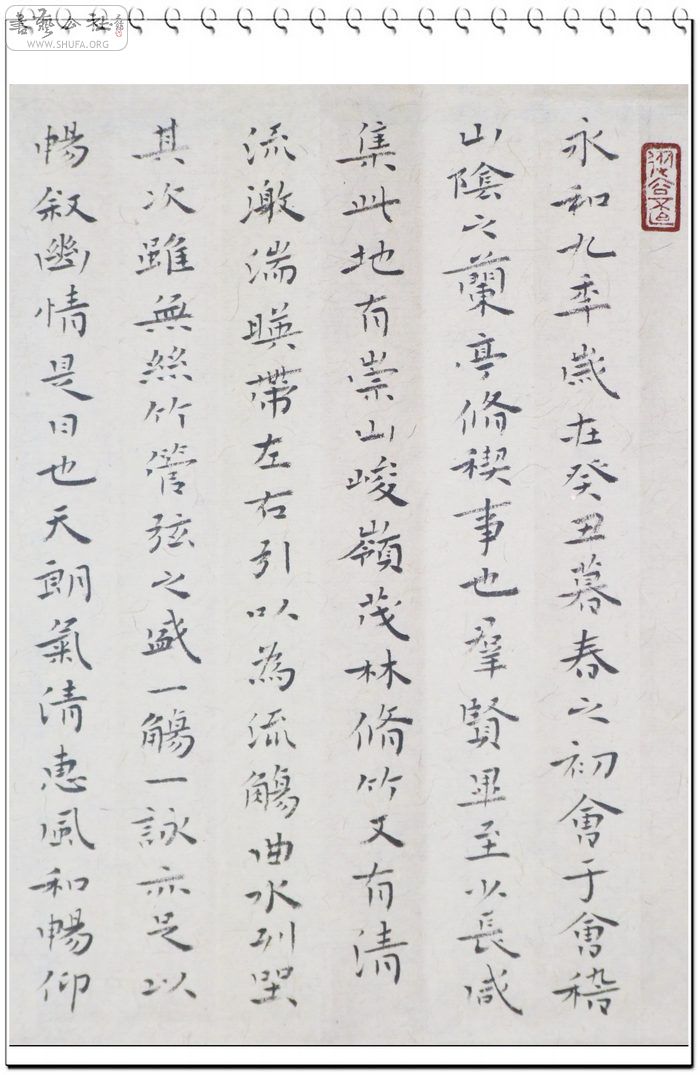 書藝公社
WWW.SHUFA.ORG
永和九秊歲在癸丑暮春之初會于會稽
山陰之蘭亭脩禊事也羣賢畢至少長咸
集此地有崇山峻嶺茂林脩竹又有清
流激湍暎帶左右引以為流觴曲水列坐
其次雖無絲竹管弦之盛一觴一詠亦足以
暢叙幽情是日也天朗氣清惠風和暢仰